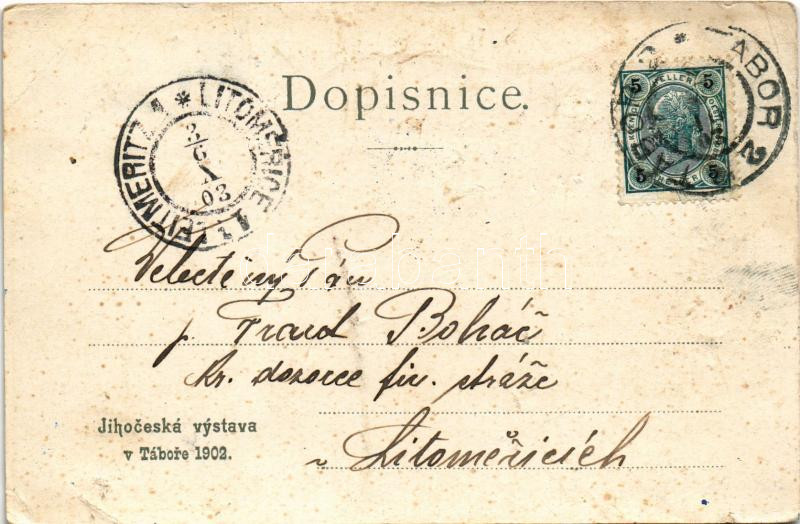 Dopisnice.
LEITMERITZ 1 * LITOMĚŘICE 1
3/6 X 03
TÁBOR 2 *
5 HELLER 5
5 HELLER 5
Velectěný Pán
p. Frand Boháč
kr. dozorce fin. stráže
v Litoměřicích
Jihočeská výstava
v Táboře 1902.